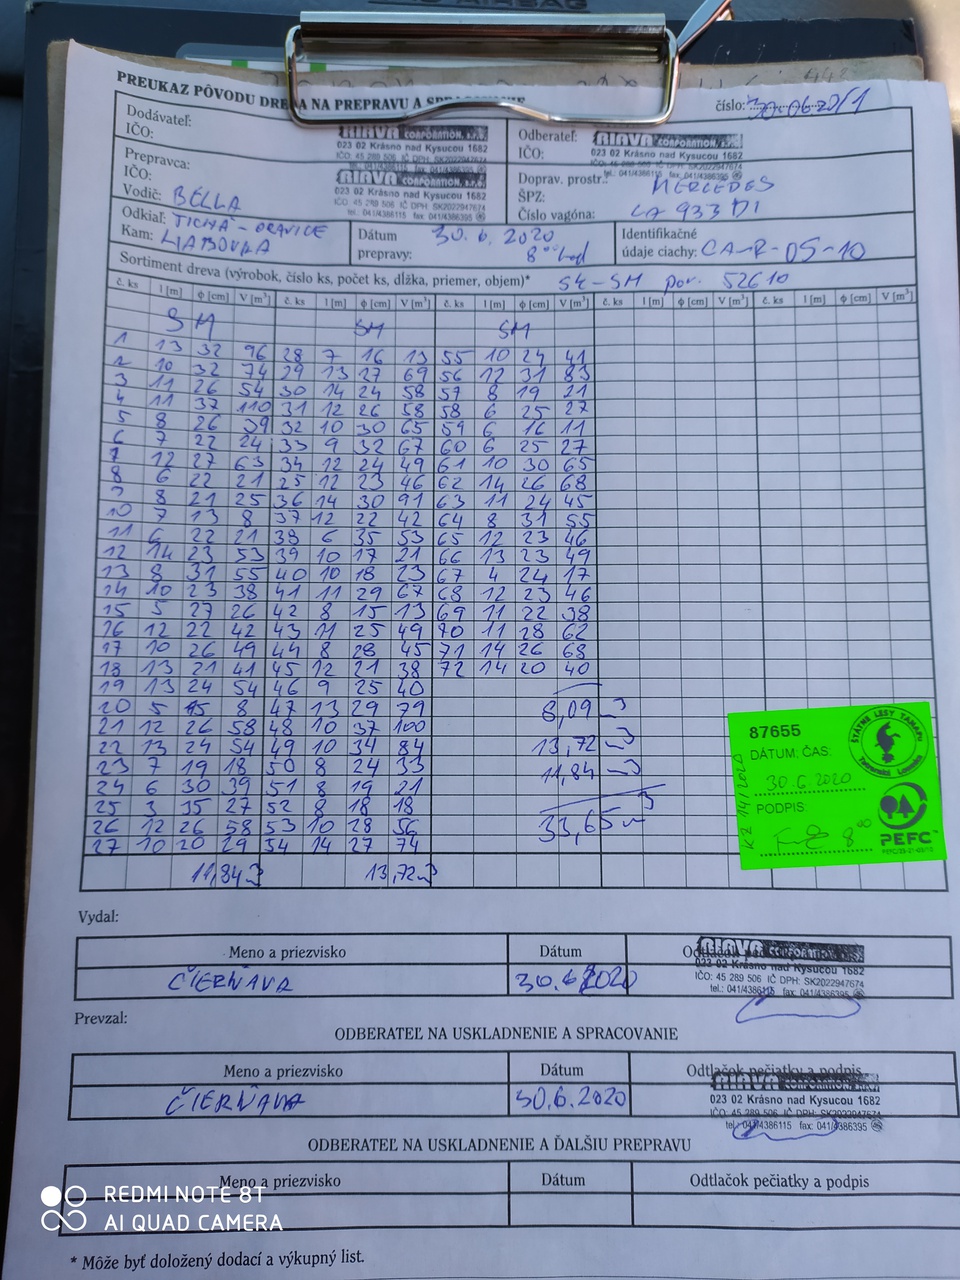 PREUKAZ PÔVODU DREVA NA PREPRAVU A
číslo: 30.06.20/1
Dodávateľ:
IČO:
RIAVA CORPORATION, s.r.o.
023 02 Krásno nad Kysucou 1682
IČO: 45 289 506 IČ DPH: SK2022947674
tel.: 041/4386115 fax: 041/4386395
Odberateľ:
IČO:
RIAVA CORPORATION, s.r.o.
023 02 Krásno nad Kysucou 1682
IČO: 45 289 506 IČ DPH: SK2022947674
tel.: 041/4386115 fax: 041/4386395
Prepravca:
IČO:
Vodič: BELLA
RIAVA CORPORATION, s.r.o.
023 02 Krásno nad Kysucou 1682
IČO: 45 289 506 IČ DPH: SK2022947674
tel.: 041/4386115 fax: 041/4386395
Doprav. prostr.: MERCEDES
ŠPZ:
Číslo vagóna: CA 933 DI
Odkiaľ: TICHÁ - ORAVICE
Kam:
Dátum 30.6.2020
prepravy: 8 00 hod
Identifikačné
údaje ciachy: CA-R-05-10
Sortiment dreva (výrobok, číslo ks, počet ks, dĺžka, priemer, objem)* SK-SM por. 52610
č. ks l [m] ϕ [cm] V [m³] č. ks l [m] ϕ [cm] V [m³] č. ks l [m] ϕ [cm] V [m³] č. ks l [m] ϕ [cm] V [m³] č. ks l [m] ϕ [cm] V [m³]
SM SM SM
1 13 32 96 28 7 16 13 55 10 24 41
2 10 32 74 29 13 27 69 56 12 31 83
3 11 26 54 30 14 24 58 57 8 19 21
4 11 37 110 31 12 26 58 58 6 25 27
5 8 26 39 32 10 30 65 59 6 16 11
6 7 22 24 33 9 32 67 60 6 25 27
7 12 27 63 34 12 24 49 61 10 30 65
8 6 22 21 25 12 23 46 62 14 26 68
9 8 21 25 36 14 30 91 63 11 24 45
10 7 13 8 37 12 22 42 64 8 31 55
11 6 22 21 38 6 35 53 65 12 23 46
12 14 23 53 39 10 17 21 66 13 23 49
13 8 31 55 40 10 18 23 67 4 24 17
14 10 23 38 41 11 29 67 68 12 23 46
15 5 27 26 42 8 15 13 69 11 22 38
16 12 22 42 43 11 25 49 70 11 28 62
17 10 26 49 44 8 28 45 71 14 26 68
18 13 21 41 45 12 21 38 72 14 20 40
19 13 24 54 46 9 25 40
20 5 15 8 47 13 29 79 8,09 m3
21 12 26 58 48 10 37 100
22 13 24 54 49 10 34 84 13,72 m3
23 7 19 18 50 8 24 33 11,84 m3
24 6 30 39 51 8 19 21
25 3 35 27 52 8 18 18
26 12 26 58 53 10 28 56 33,65 m3
27 10 20 29 54 14 27 74
11,84 m3 13,72 m3
87655
DÁTUM, ČAS:
30.6.2020
PODPIS:
8 00
KZ 14/2020
ŠTÁTNE LESY TANAPU
Tatranská Lomnica
PEFC
Vydal:
Meno a priezvisko Dátum
ČIERŇAVA 30.6.2020
RIAVA CORPORATION, s.r.o.
023 02 Krásno nad Kysucou 1682
IČO: 45 289 506 IČ DPH: SK2022947674
tel.: 041/4386115 fax: 041/4386395
Prevzal:
ODBERATEĽ NA USKLADNENIE A SPRACOVANIE
Meno a priezvisko Dátum Odtlačok pečiatky a podpis
ČIERŇAVA 30.6.2020
RIAVA CORPORATION, s.r.o.
023 02 Krásno nad Kysucou 1682
IČO: 45 289 506 IČ DPH: SK2022947674
tel.: 041/4386115 fax: 041/4386395
ODBERATEĽ NA USKLADNENIE A ĎALŠIU PREPRAVU
Meno a priezvisko Dátum Odtlačok pečiatky a podpis
REDMI NOTE 8T
AI QUAD CAMERA
* Môže byť doložený dodací a výkupný list.